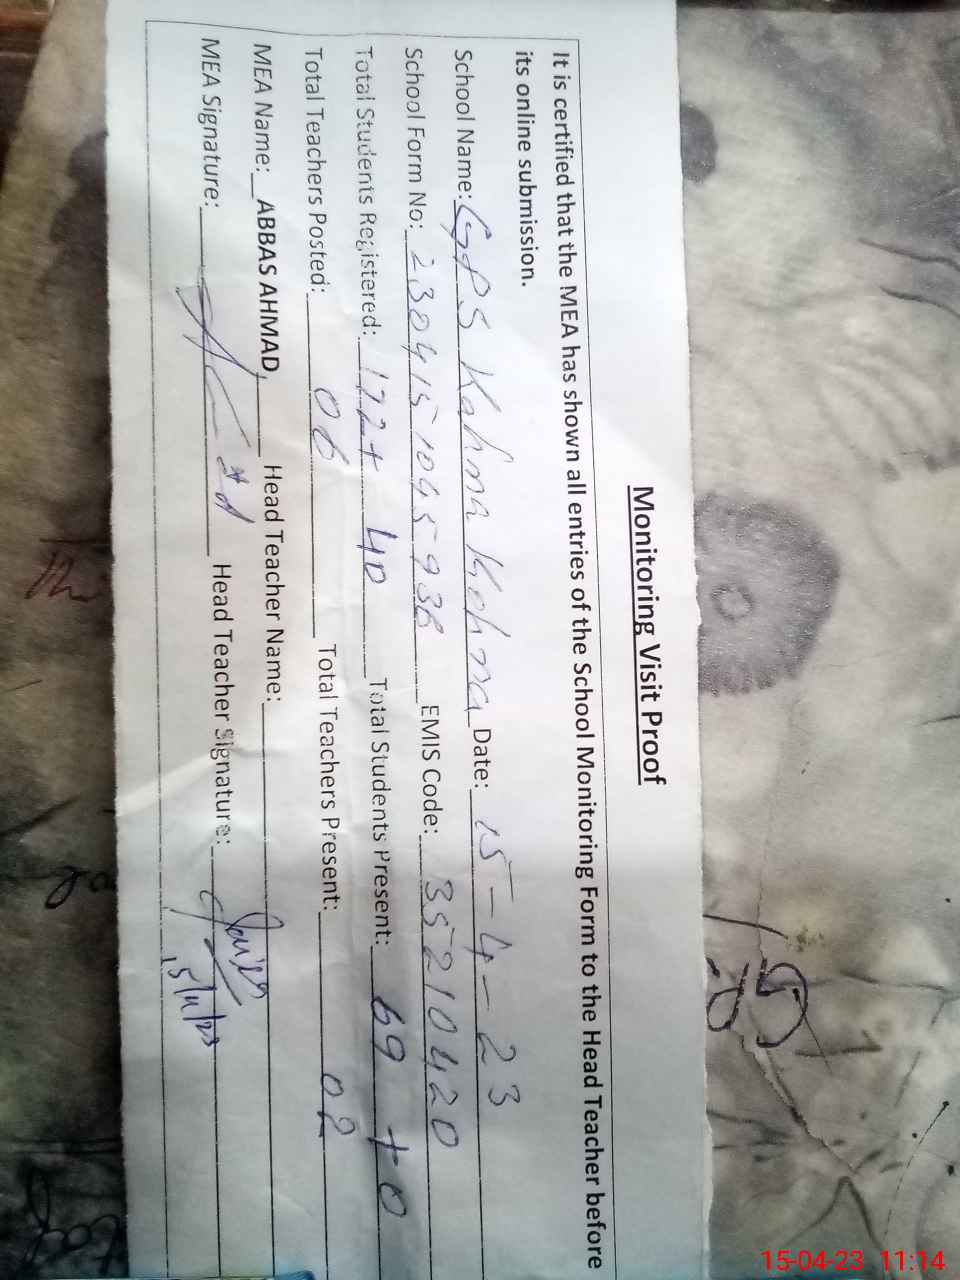 Monitoring Visit Proof
It is certified that the MEA has shown all entries of the School Monitoring Form to the Head Teacher before
its online submission.
School Name: GPS Kohma Kohma Date: 15-4-23
School Form No: 230415104593B EMIS Code: 35210420
Total Students Registered: 122+ 40 Total Students Present: 69 + 0
Total Teachers Posted: 06 Total Teachers Present: 02
MEA Name: ABBAS AHMAD Head Teacher Name:
MEA Signature: Head Teacher Signature:
15/4/23
15-04-23 11:14